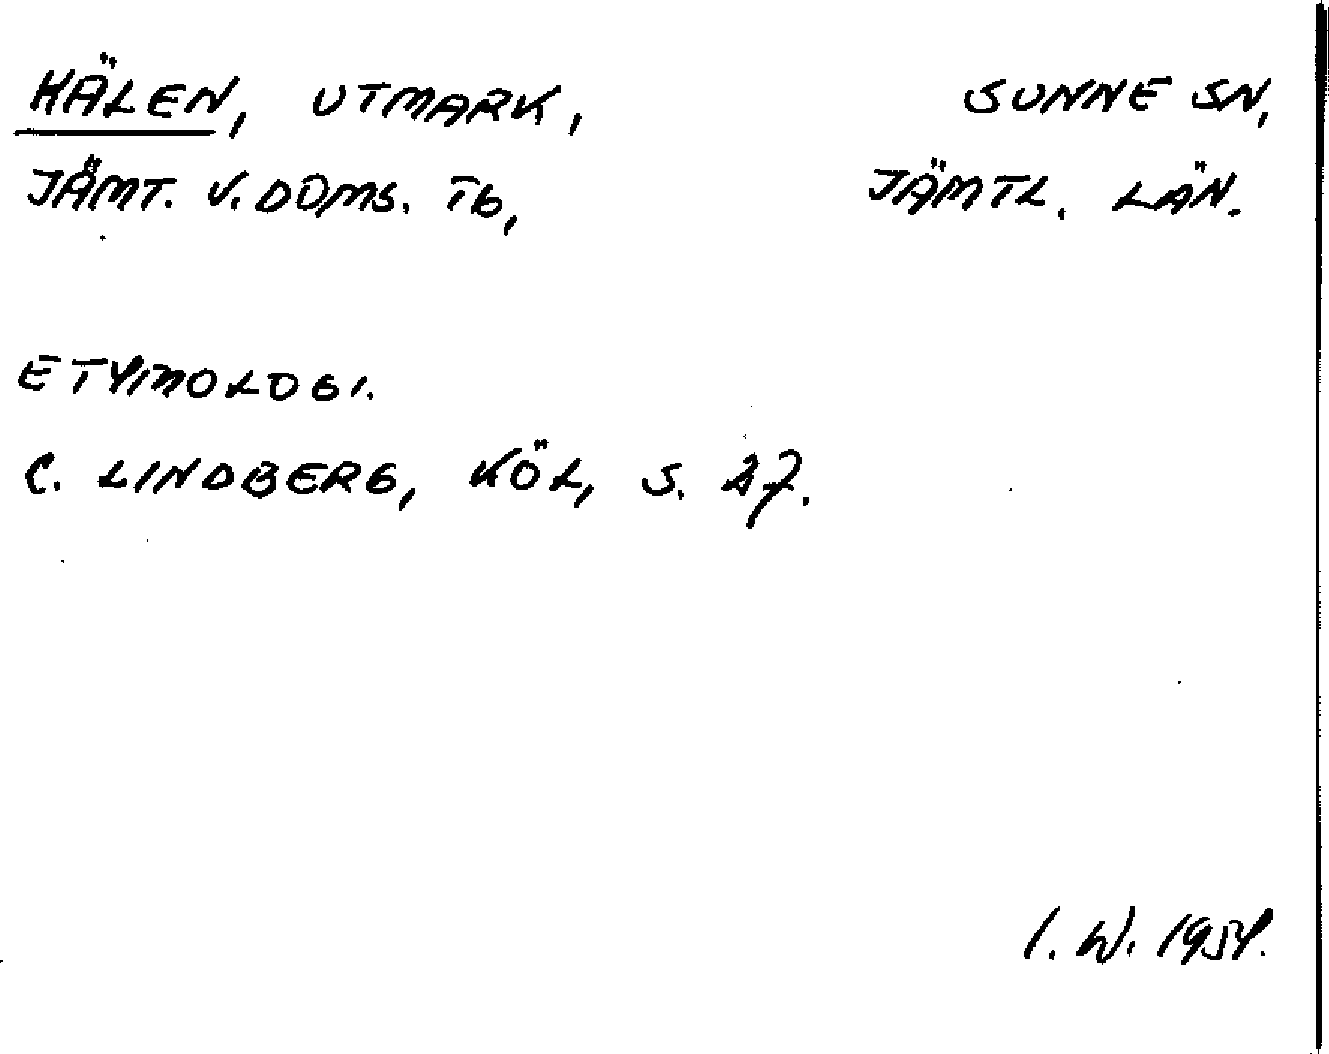 KÄLEN, UTMARK, SUNNE SN,
JÄMT. V. DOMS. TB, JÄMTL. LÄN.
ETYMOLOGI.
C. LINDBERG, KÖL, S.
I. W. 1954.